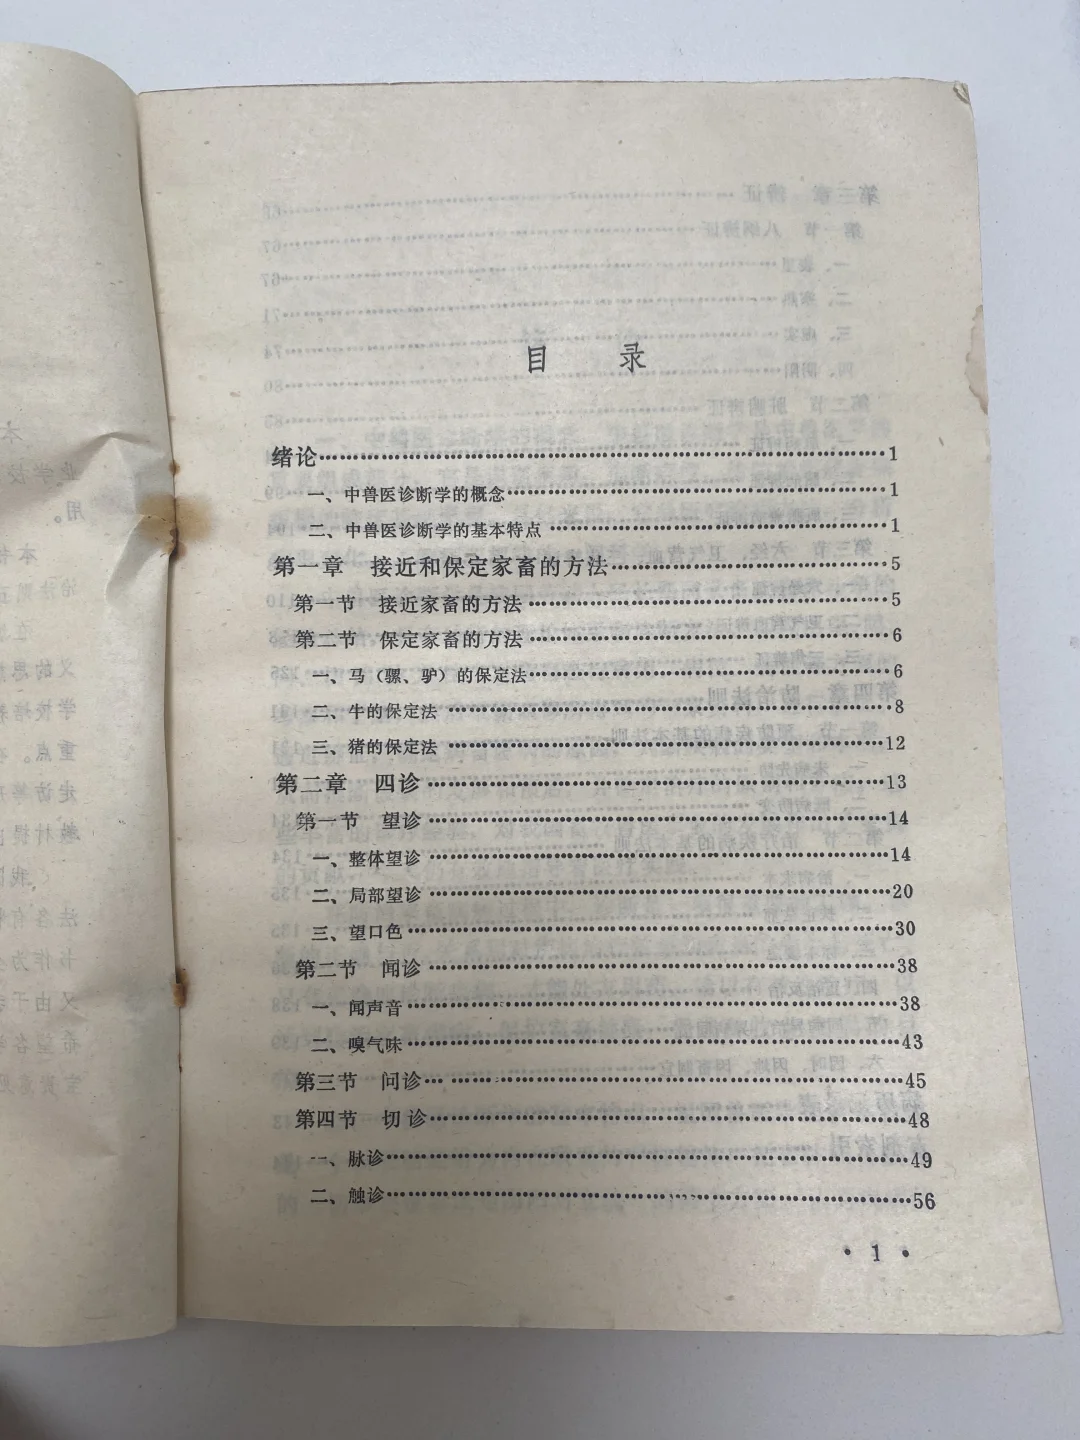 目 录
绪论……1
一、中兽医诊断学的概念……1
二、中兽医诊断学的基本特点……1
第一章 接近和保定家畜的方法……5
第一节 接近家畜的方法……5
第二节 保定家畜的方法……6
一、马（骡、驴）的保定法……6
二、牛的保定法……8
三、猪的保定法……12
第二章 四诊……13
第一节 望诊……14
一、整体望诊……14
二、局部望诊……20
三、望口色……30
第二节 闻诊……38
一、闻声音……38
二、嗅气味……43
第三节 问诊……45
第四节 切诊……48
一、脉诊……49
二、触诊……56
• 1 •